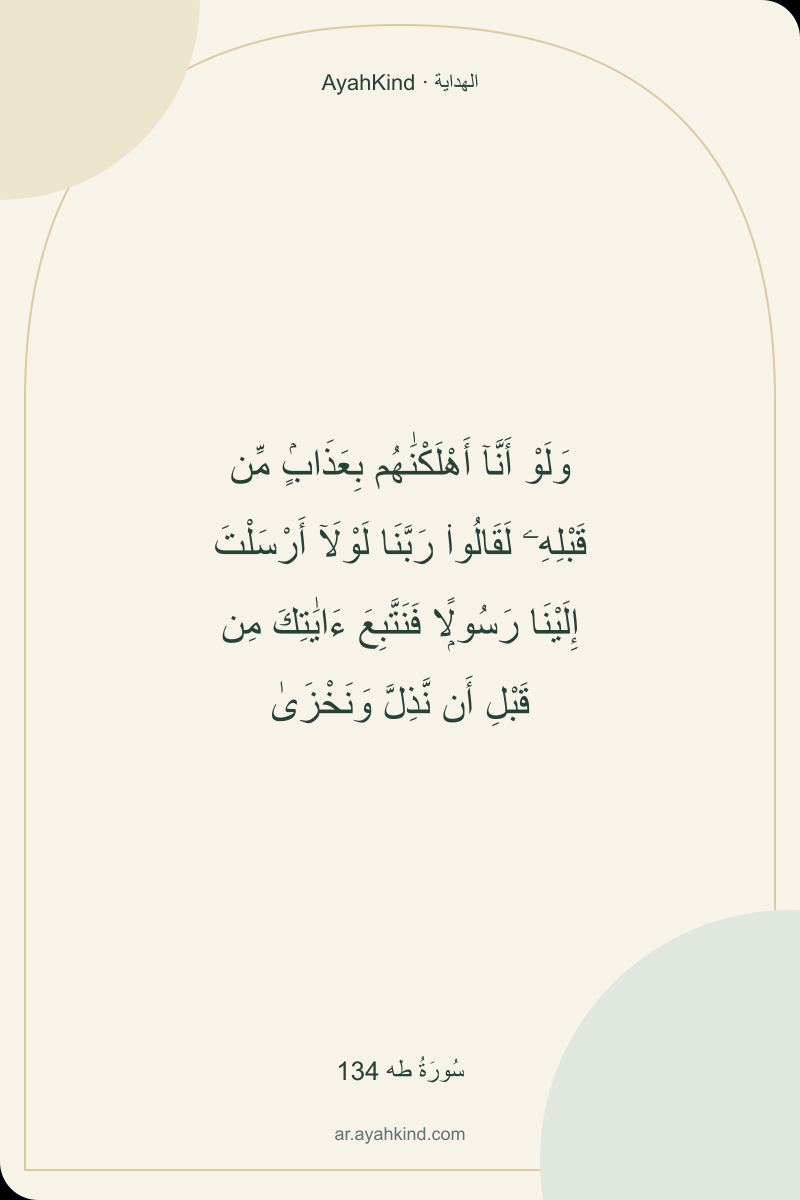 AyahKind · الهداية
وَلَوْ أَنَّآ أَهْلَكْنَٰهُم بِعَذَابٍۢ مِّن
قَبْلِهِۦ لَقَالُوا۟ رَبَّنَا لَوْلَآ أَرْسَلْتَ
إِلَيْنَا رَسُولًۭا فَنَتَّبِعَ ءَايَٰتِكَ مِن
قَبْلِ أَن نَّذِلَّ وَنَخْزَىٰ
سُورَةُ طه 134
ar.ayahkind.com